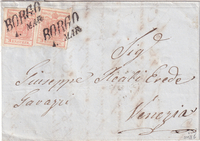 BORGO
1. MAR
BORGO
1. MAR
Sig.
Giuseppe
Erede
Gavazzi
Venezia